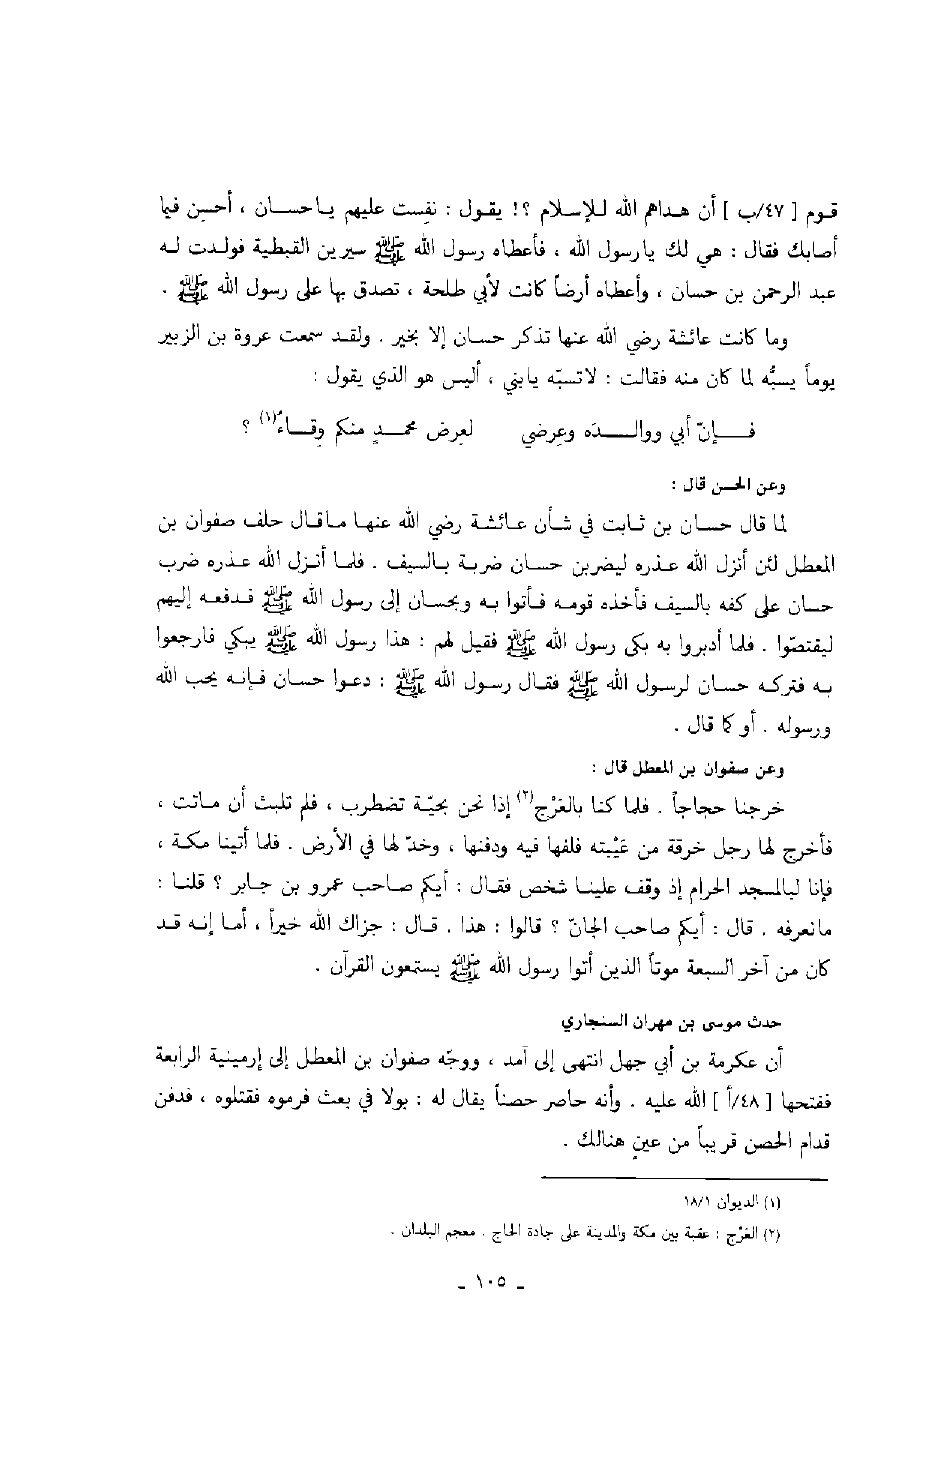 قوم [ ٤٧/ب ] أن هداهم الله للإسلام ؟! يقول : نفِست عليهم ياحسان ، أحسِن فيما
أصابك فقال : هي لك يارسول الله ، فأعطاه رسول الله ﷺ سيرين القبطية فولدت له
عبد الرحمن بن حسان ، وأعطاه أرضاً كانت لأبي طلحة ، تصدق بها على رسول الله ﷺ .
وما كانت عائشة رضي الله عنها تذكر حسان إلا بخير . ولقد سمعت عروة بن الزبير
يوماً يسبُّه لما كان منه فقالت : لاتسبّه يابني ، أليس هو الذي يقول :
فإنّ أبي ووالدَه وعِرضي لعِرض محمدٍ منكم وِقاءُ(١) ؟
وعن الحسن قال :
لما قال حسان بن ثابت في شأن عائشة رضي الله عنها ماقال حلف صفوان بن
المعطل لئن أنزل الله عذره ليضربن حسان ضربة بالسيف . فلما أنزل الله عذره ضرب
حسان على كفه بالسيف فأخذه قومه فأتوا به وبحسان إلى رسول الله ﷺ فدفعه إليهم
ليقتصّوا . فلما أدبروا به بكى رسول الله ﷺ فقيل لهم : هذا رسول الله ﷺ يبكي فارجعوا
به فتركه حسان لرسول الله ﷺ فقال رسول الله ﷺ : دعوا حسان فإنه يحب الله
ورسوله . أو كما قال .
وعن صفوان بن المعطل قال :
خرجنا حجاجاً . فلما كنا بالعَرْج(٢) إذا نحن بحيّة تضطرب ، فلم تلبث أن ماتت ،
فأخرج لها رجل خرقة من عَيْبته فلفها فيه ودفنها ، وخدّ لها في الأرض . فلما أتينا مكة ،
فإنا لبالمسجد الحرام إذ وقف علينا شخص فقال : أيكم صاحب عمرو بن جابر ؟ قلنا :
مانعرفه . قال : أيكم صاحب الجانّ ؟ قالوا : هذا . قال : جزاك الله خيراً ، أما إنه قد
كان من آخر السبعة موتاً الذين أتوا رسول الله ﷺ يستمعون القرآن .
حدث موسى بن مهران السنجاري
أن عكرمة بن أبي جهل انتهى إلى آمد ، ووجّه صفوان بن المعطل إلى إرمينية الرابعة
ففتحها [ ٤٨/أ ] الله عليه . وأنه حاصر حصناً يقال له : بولا في بعث فرموه فقتلوه ، فدفن
قدام الحصن قريباً من عينٍ هنالك .
(١) الديوان ١٨/١
(٢) العَرْج : عقبة بين مكة والمدينة على جادة الحاج . معجم البلدان .
ـ ١٠٥ ـ